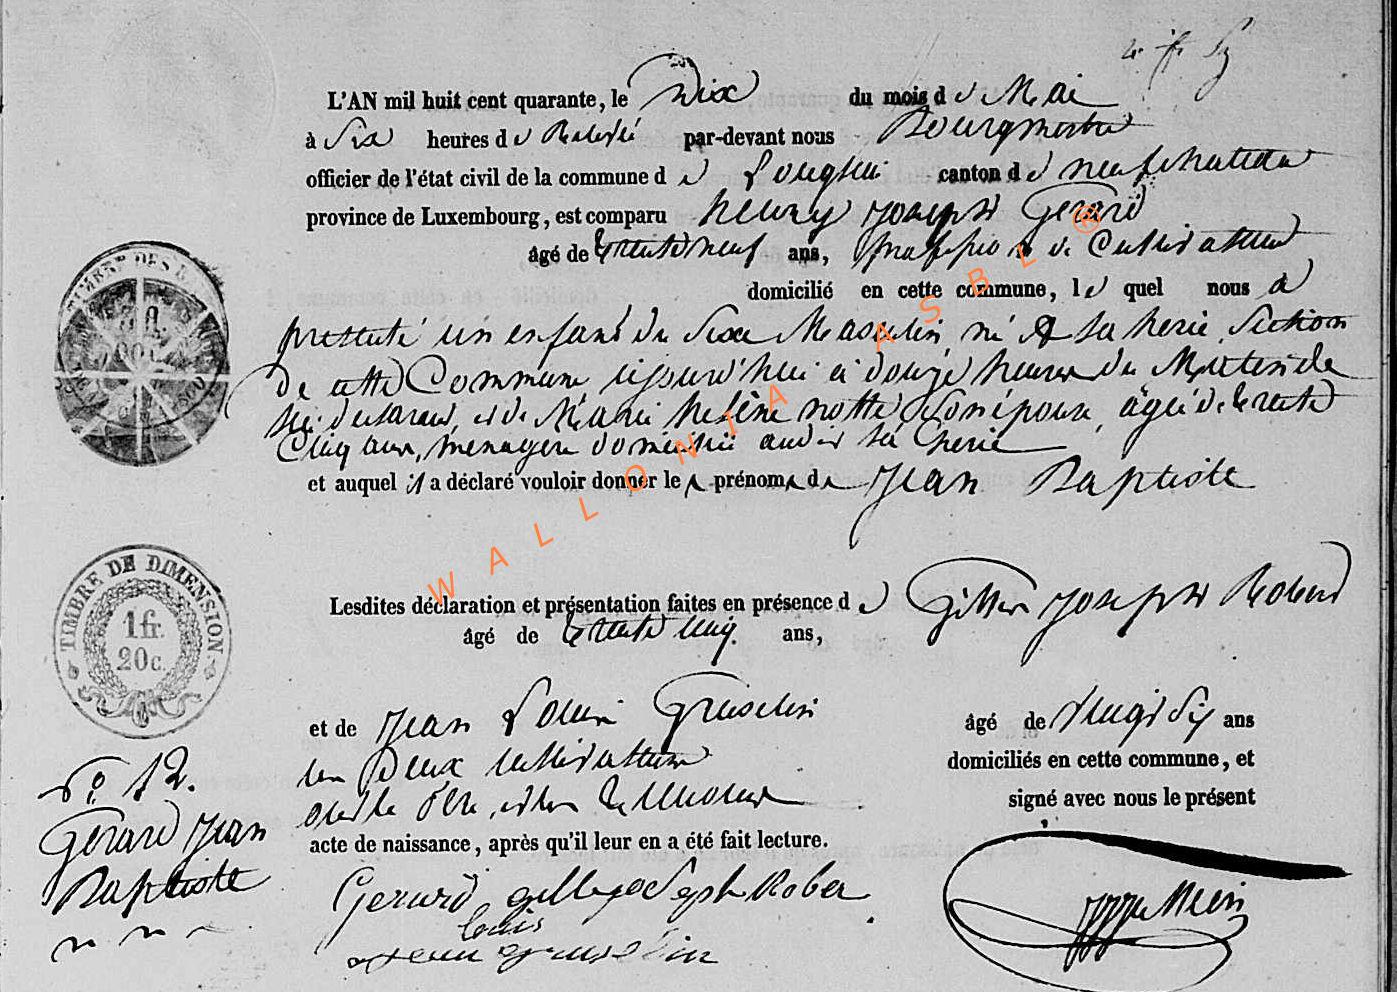 L'AN mil huit cent quarante, le Dix du mois de Mai
à Six heures de par-devant nous Bourgmestre
officier de l'état civil de la commune de canton de neufchateau
province de Luxembourg, est comparu henry joseph Gerard
âgé de trente neuf ans, profession de Cultivateur
domicilié en cette commune, le quel nous a
présenté un enfant du sexe Masculin, né à la herie, section
de cette Commune aujourd'hui à douze heures du Matin de
lui déclarant, et de Marie heléne notte son épouse, âgée de trente
Cinq ans, ménagere domiciliée audit la herie
et auquel il a déclaré vouloir donner les prénoms de Jean Baptiste
TIMBRE DE DIMENSION
1 fr.
20 c.
Lesdites déclaration et présentation faites en présence de Joseph
âgé de trente cinq ans,
et de Jean Louis âgé de vingt six ans
les Deux cultivateurs domiciliés en cette commune, et
signé avec nous le présent
acte de naissance, après qu'il leur en a été fait lecture.
No 12.
Gerard Jean
Baptiste
Gerard
louis
jean
WALLONIA ASBL ®